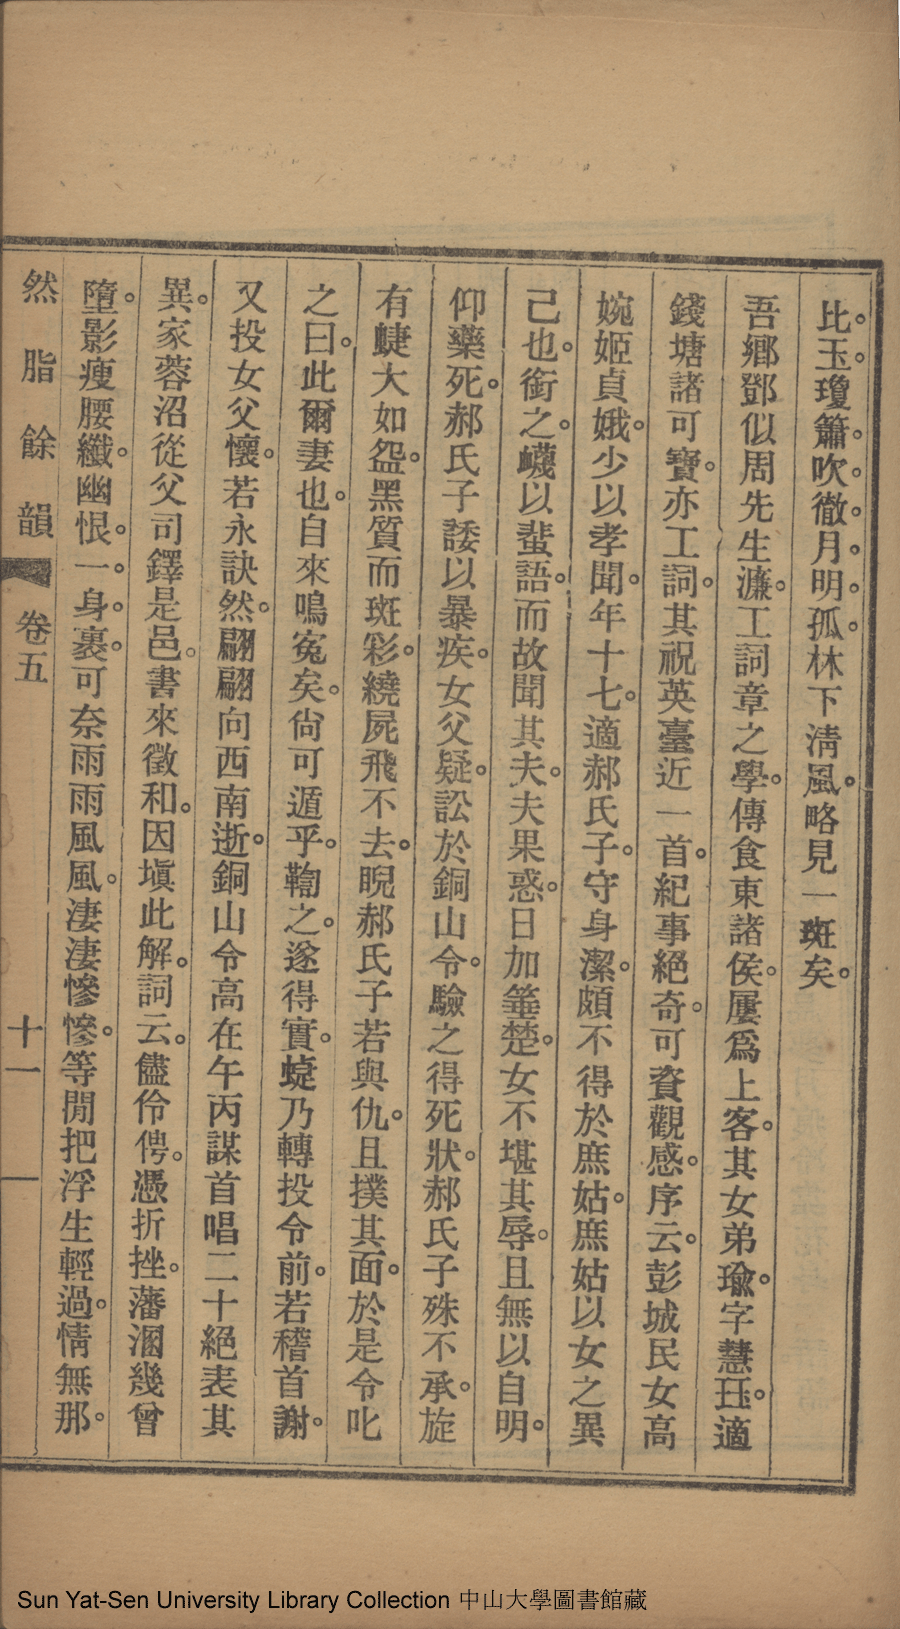 比玉瓊簫吹徹月明孤林下淸風略見一斑矣。
吾鄉鄧似周先生濂。工詞章之學。傳食東諸侯。屢爲上客。其女弟瑜。字慧珏。適
錢塘諸可寶。亦工詞。其祝英臺近一首。紀事絕奇。可資觀感。序云。彭城民女高
婉姬貞娥。少以孝聞。年十七。適郝氏子。守身潔。頗不得於庶姑。庶姑以女之異
己也。銜之。衊以蜚語。而故聞其夫。夫果惑。日加箠楚。女不堪其辱。且無以自明。
仰藥死。郝氏子諉以暴疾。女父疑。訟於銅山令。驗之得死狀。郝氏子殊不承。旋
有蜨大如盌。黑質而斑彩。繞屍飛不去。睨郝氏子若與仇。且撲其面。於是令叱
之曰。此爾妻也。自來鳴冤矣。尙可遁乎。鞫之。遂得實。蜨乃轉投令前。若稽首謝。
又投女父懷。若永訣然。翩翩向西南逝。銅山令高在午丙謀首唱二十絕表其
異。家蓉沼從父司鐸是邑。書來徵和。因塡此解。詞云。儘伶俜。憑折挫。藩溷幾曾
墮。影瘦腰纖。幽恨。一身裹。可奈雨雨風風。淒淒慘慘。等閒把浮生輕過。情無那。
然脂餘韻 卷五 十一
Sun Yat-Sen University Library Collection 中山大學圖書館藏